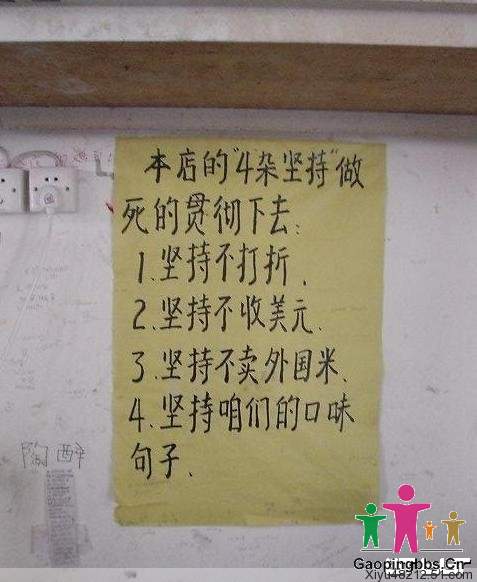 本店的"4杂坚持"做
死的贯彻下去:
1.坚持不打折.
2.坚持不收美元.
3.坚持不卖外国米.
4.坚持咱们的口味
句子.
陶醉
Gaopingbbs.Cn
Xiyu48212.51.com